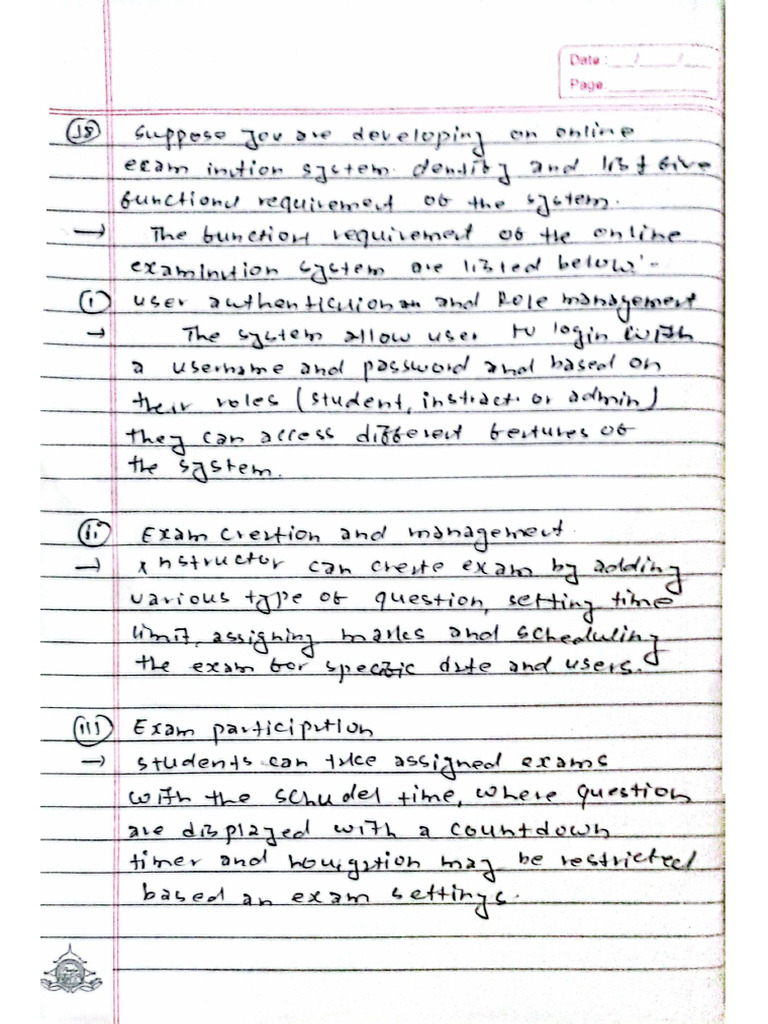 Date : __/__/__
Page.
(18) Suppose you are developing on online
exam inution system. dentify and list five
functional requirement of the system.
→ The function requirement of the online
examination system are listed below:-
(i) user authentictionan and Role management
→ The system allow user to login with
a username and password and based on
their roles (student, instract. or admin)
they can access different fertures of
the system.
(ii) Exam crertion and management.
→ Instructor can crerte exam by adding
various type of question, setting time
limit, assigning marks and scheduling
the exam for specific date and users.
(iii) Exam participation
→ students can take assigned exams
with the schudel time, where question
are displayed with a countdown
timer and may be restricted
based an exam settings.